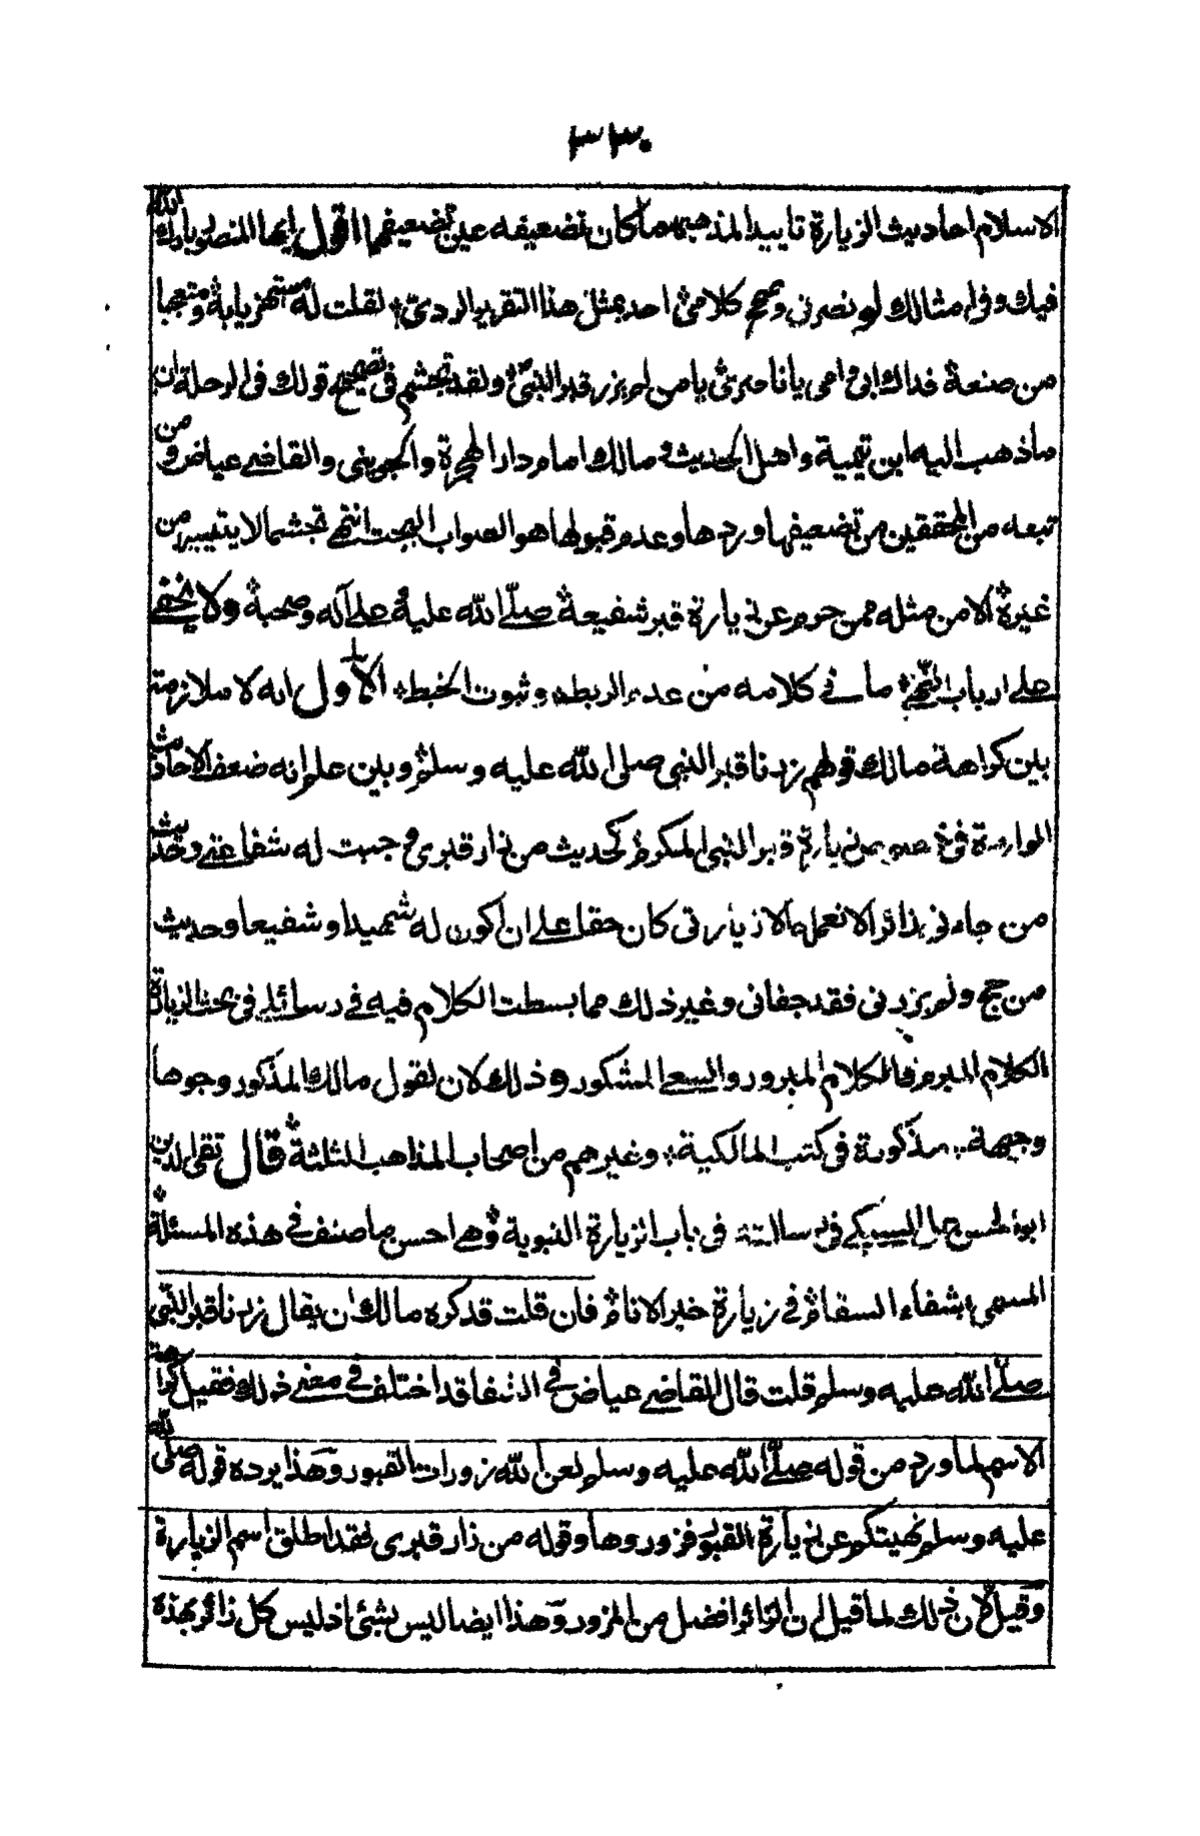 ٣٣٠
الاسلام احاديث الزيارة تاييدا لمذهبه ما كان تضعيفه عين تضعيفهما اقول ايها المنصور بارك الله
فيك وفي امثالك لو نصرني وصحح كلامي احد بمثل هذا التقرير الردي لقلت له مستهزيا به ومتعجبا
من صنعه فداك ابي وامي يا ناصري يا من لم يزر قبر النبي ولقد تجشم في تصحيح قولك في الرحلة ان
ما ذهب اليه ابن تيمية واهل الحديث و مالك امام دار الهجرة والجويني والقاضي عياض و من
تبعه من المحققين من تضعيفها وردها وعدم قبولها هو الصواب البحت انتهى تجشما لا يتيسر من
غيره الا من مثله ممن حرم عن زيارة قبر شفيعه صلى الله عليه و على آله وصحبه ولا يخفى
على ارباب النهى ما في كلامه من عدم الربط وثبوت الخبط الاول انه لا ملازمة
بين كراهة مالك قولهم زرنا قبر النبي صلى الله عليه وسلم وبين علم انه ضعف الاحاديث
الواردة في زيارة قبر النبي المكرم كحديث من زار قبري وجبت له شفاعتي وحديث
من جاءني زائرا لا تعمله الا زيارتي كان حقا على ان اكون له شهيدا وشفيعا وحديث
من حج ولم يزرني فقد جفاني وغير ذلك مما بسطت الكلام فيه في رسائلي في بحث الزيارة
الكلام المبرم والكلام المبرور والسعى المشكور وذلك لان لقول مالك المذكور وجوها
وجيهة مذكورة في كتب المالكية وغيرهم من اصحاب المذاهب الثلثة قال تقى الدين
ابو الحسن على السبكي في رسالته في باب الزيارة النبوية وهي احسن ما صنف في هذه المسئلة
المسمى بشفاء السقام في زيارة خير الانام فان قلت قد كره مالك ان يقال زرنا قبر النبي
صلى الله عليه وسلم قلت قال القاضي عياض في الشفا قد اختلف في معنى ذلك فقيل كراهة
الاسم لما ورد من قوله صلى الله عليه وسلم لعن الله زورات القبور وهذا يرده قوله صلى الله
عليه وسلم نهيتكم عن زيارة القبور فزوروها وقوله من زار قبري فقد اطلق اسم الزيارة
وقيل لان ذلك لما قيل ان الزائر افضل من المزور وهذا ايضا ليس بشئ اذ ليس كل زائر بهذه